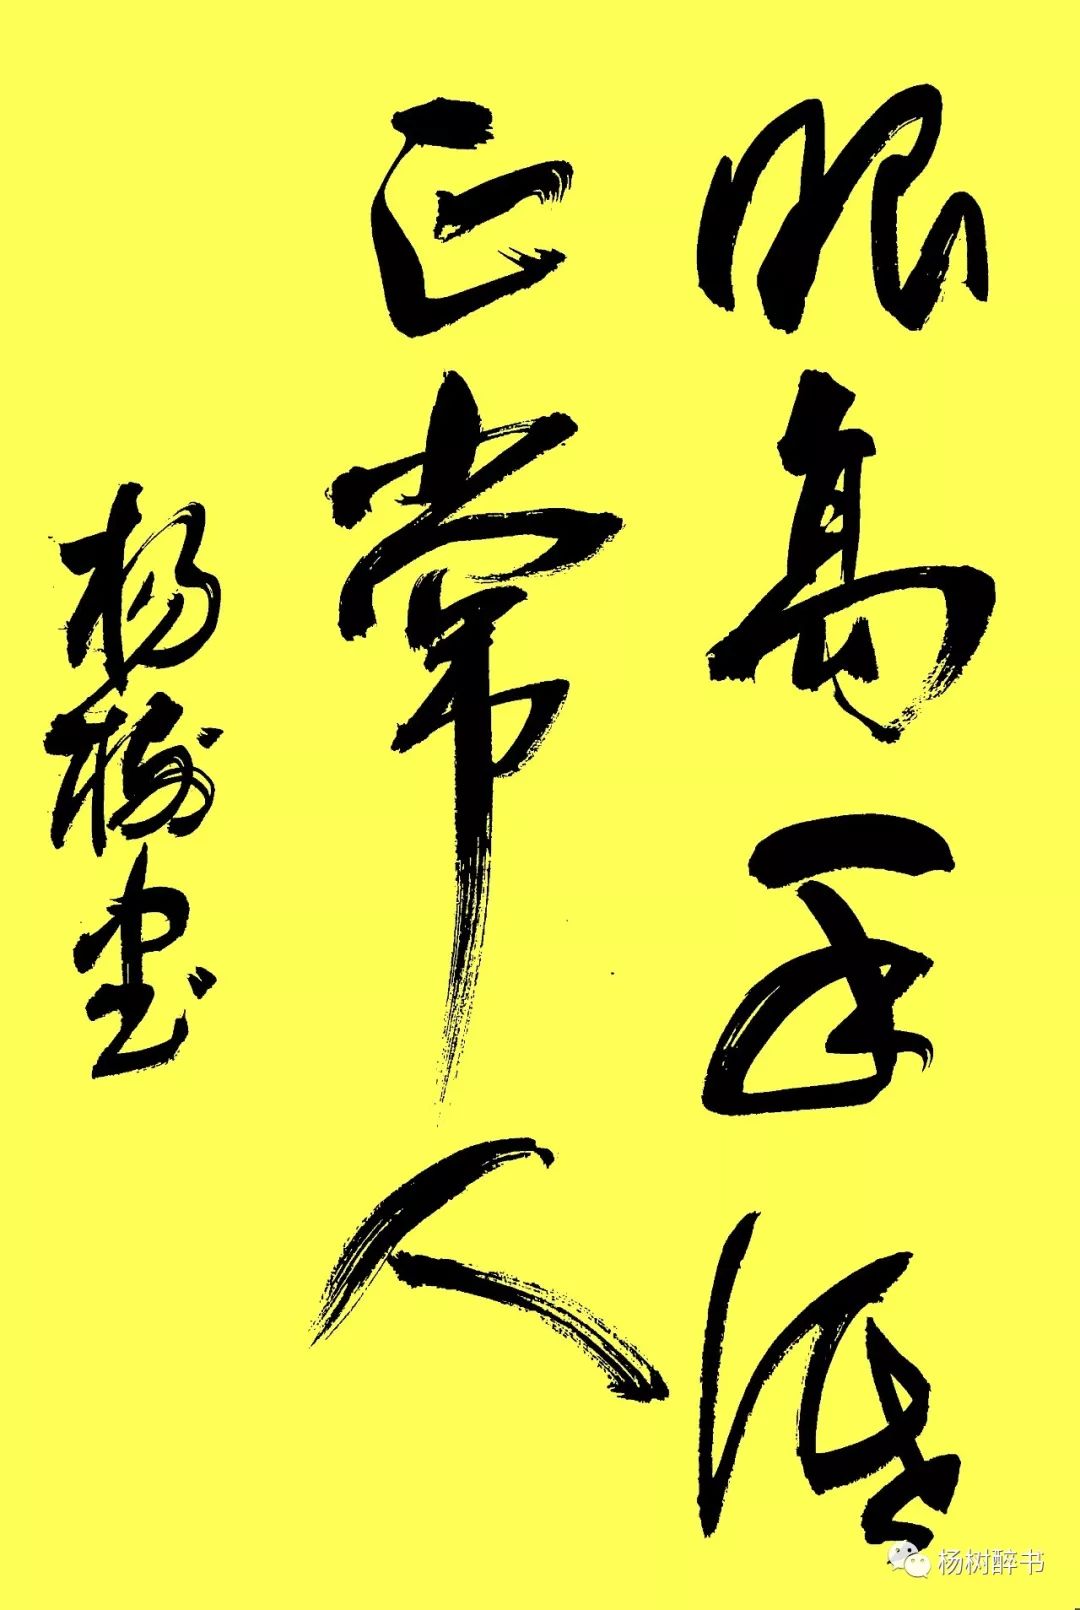 眼高手低
正常人
杨树书
杨树醉书